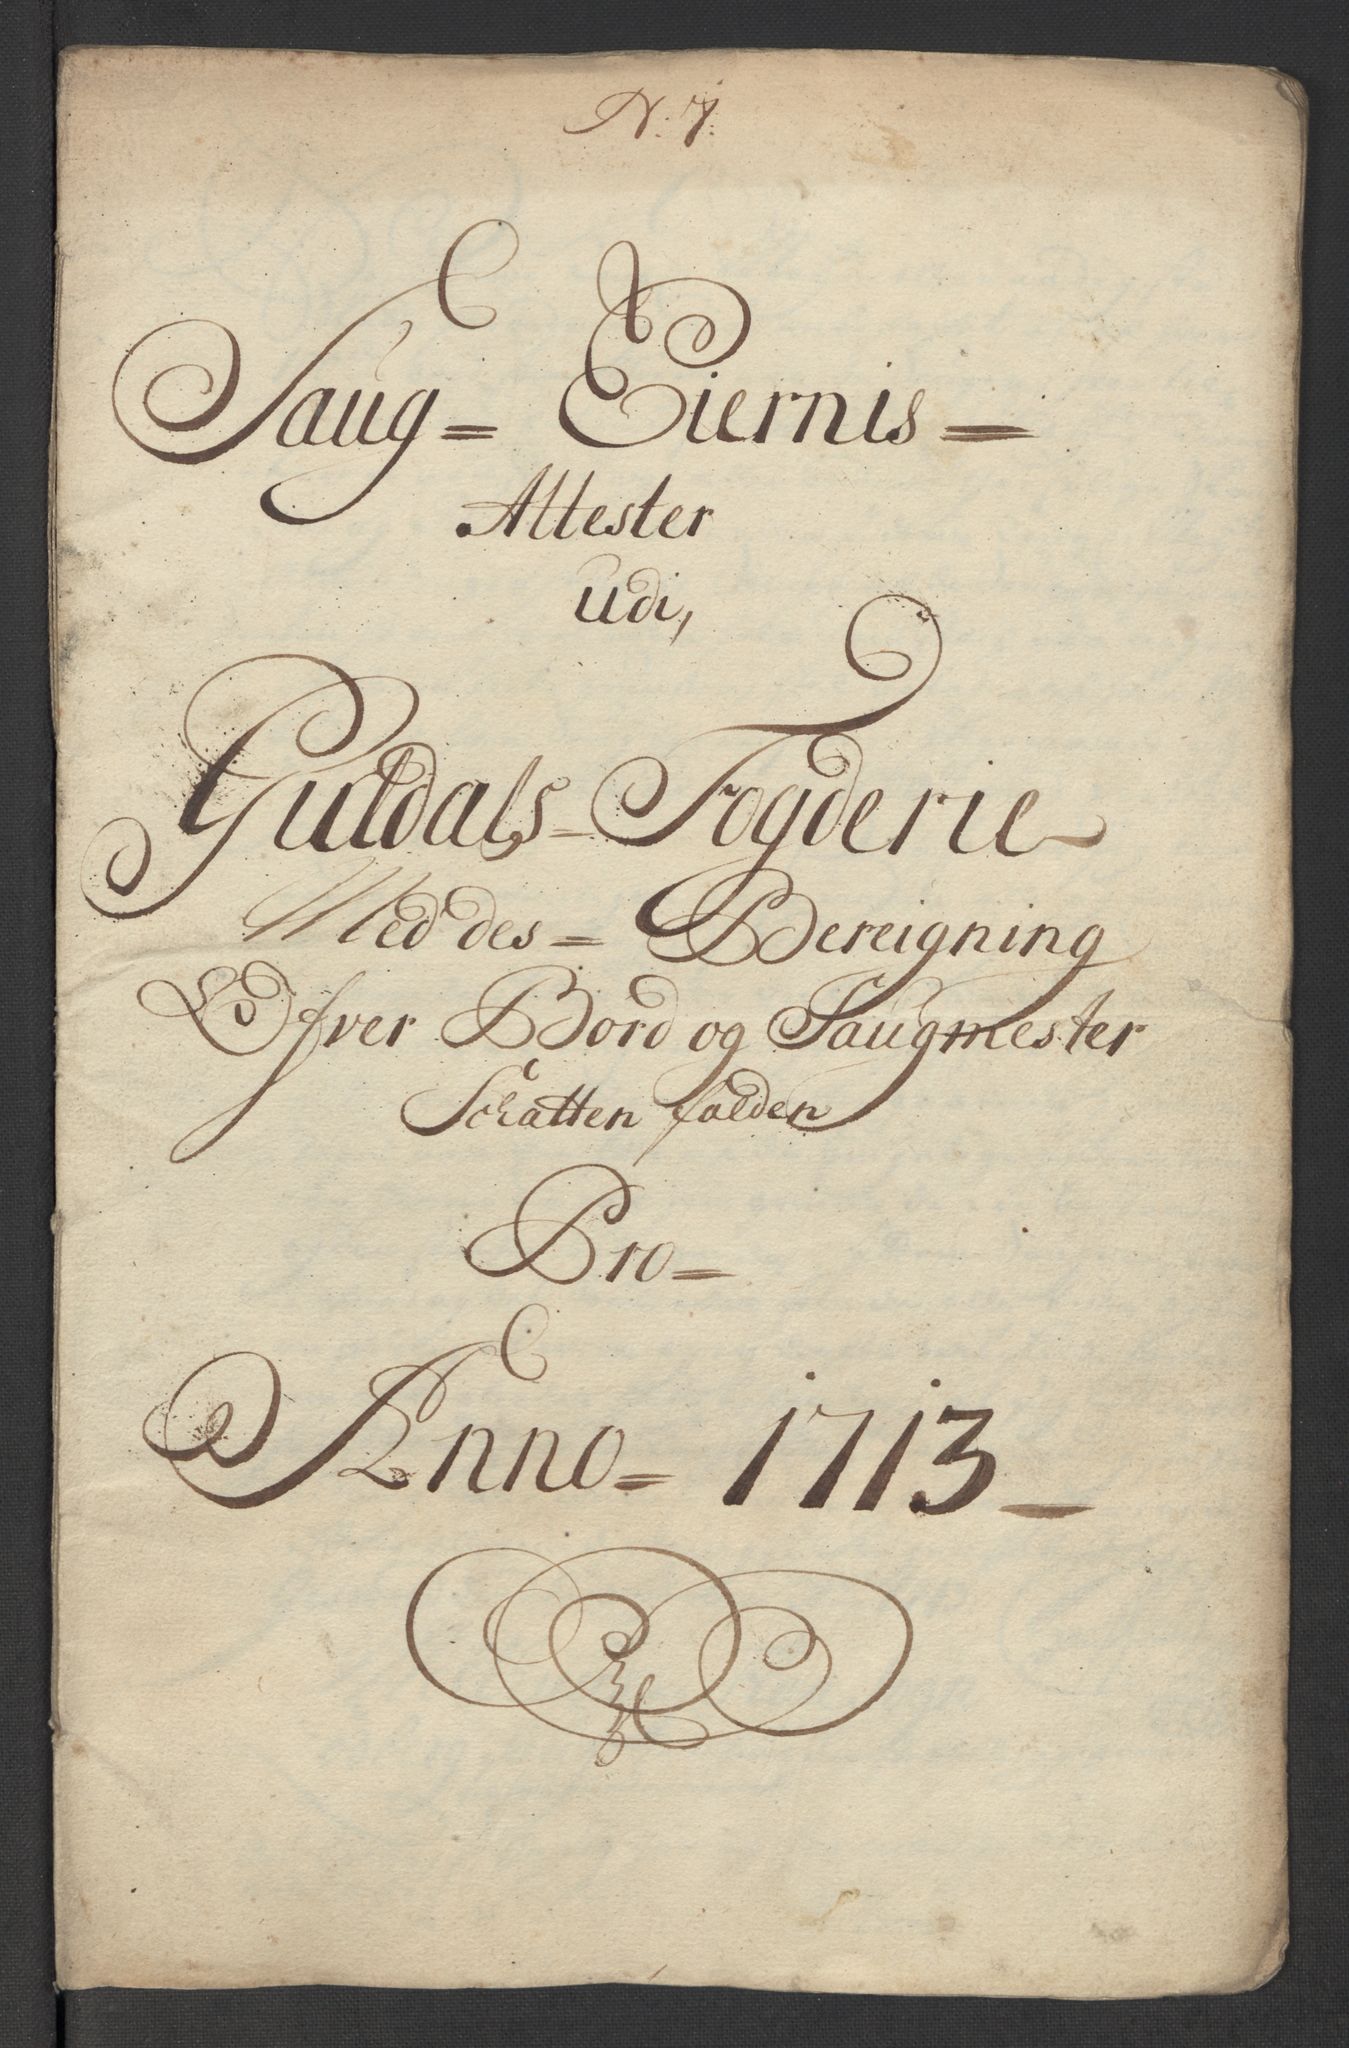 N. 7.
Saug= Eiernis=
Attester
udi,
Guldals= Fogderie
Med des= Bereigning
Ofver Bord og Saugmester
Schatten falden
Pro=
Anno= 1713